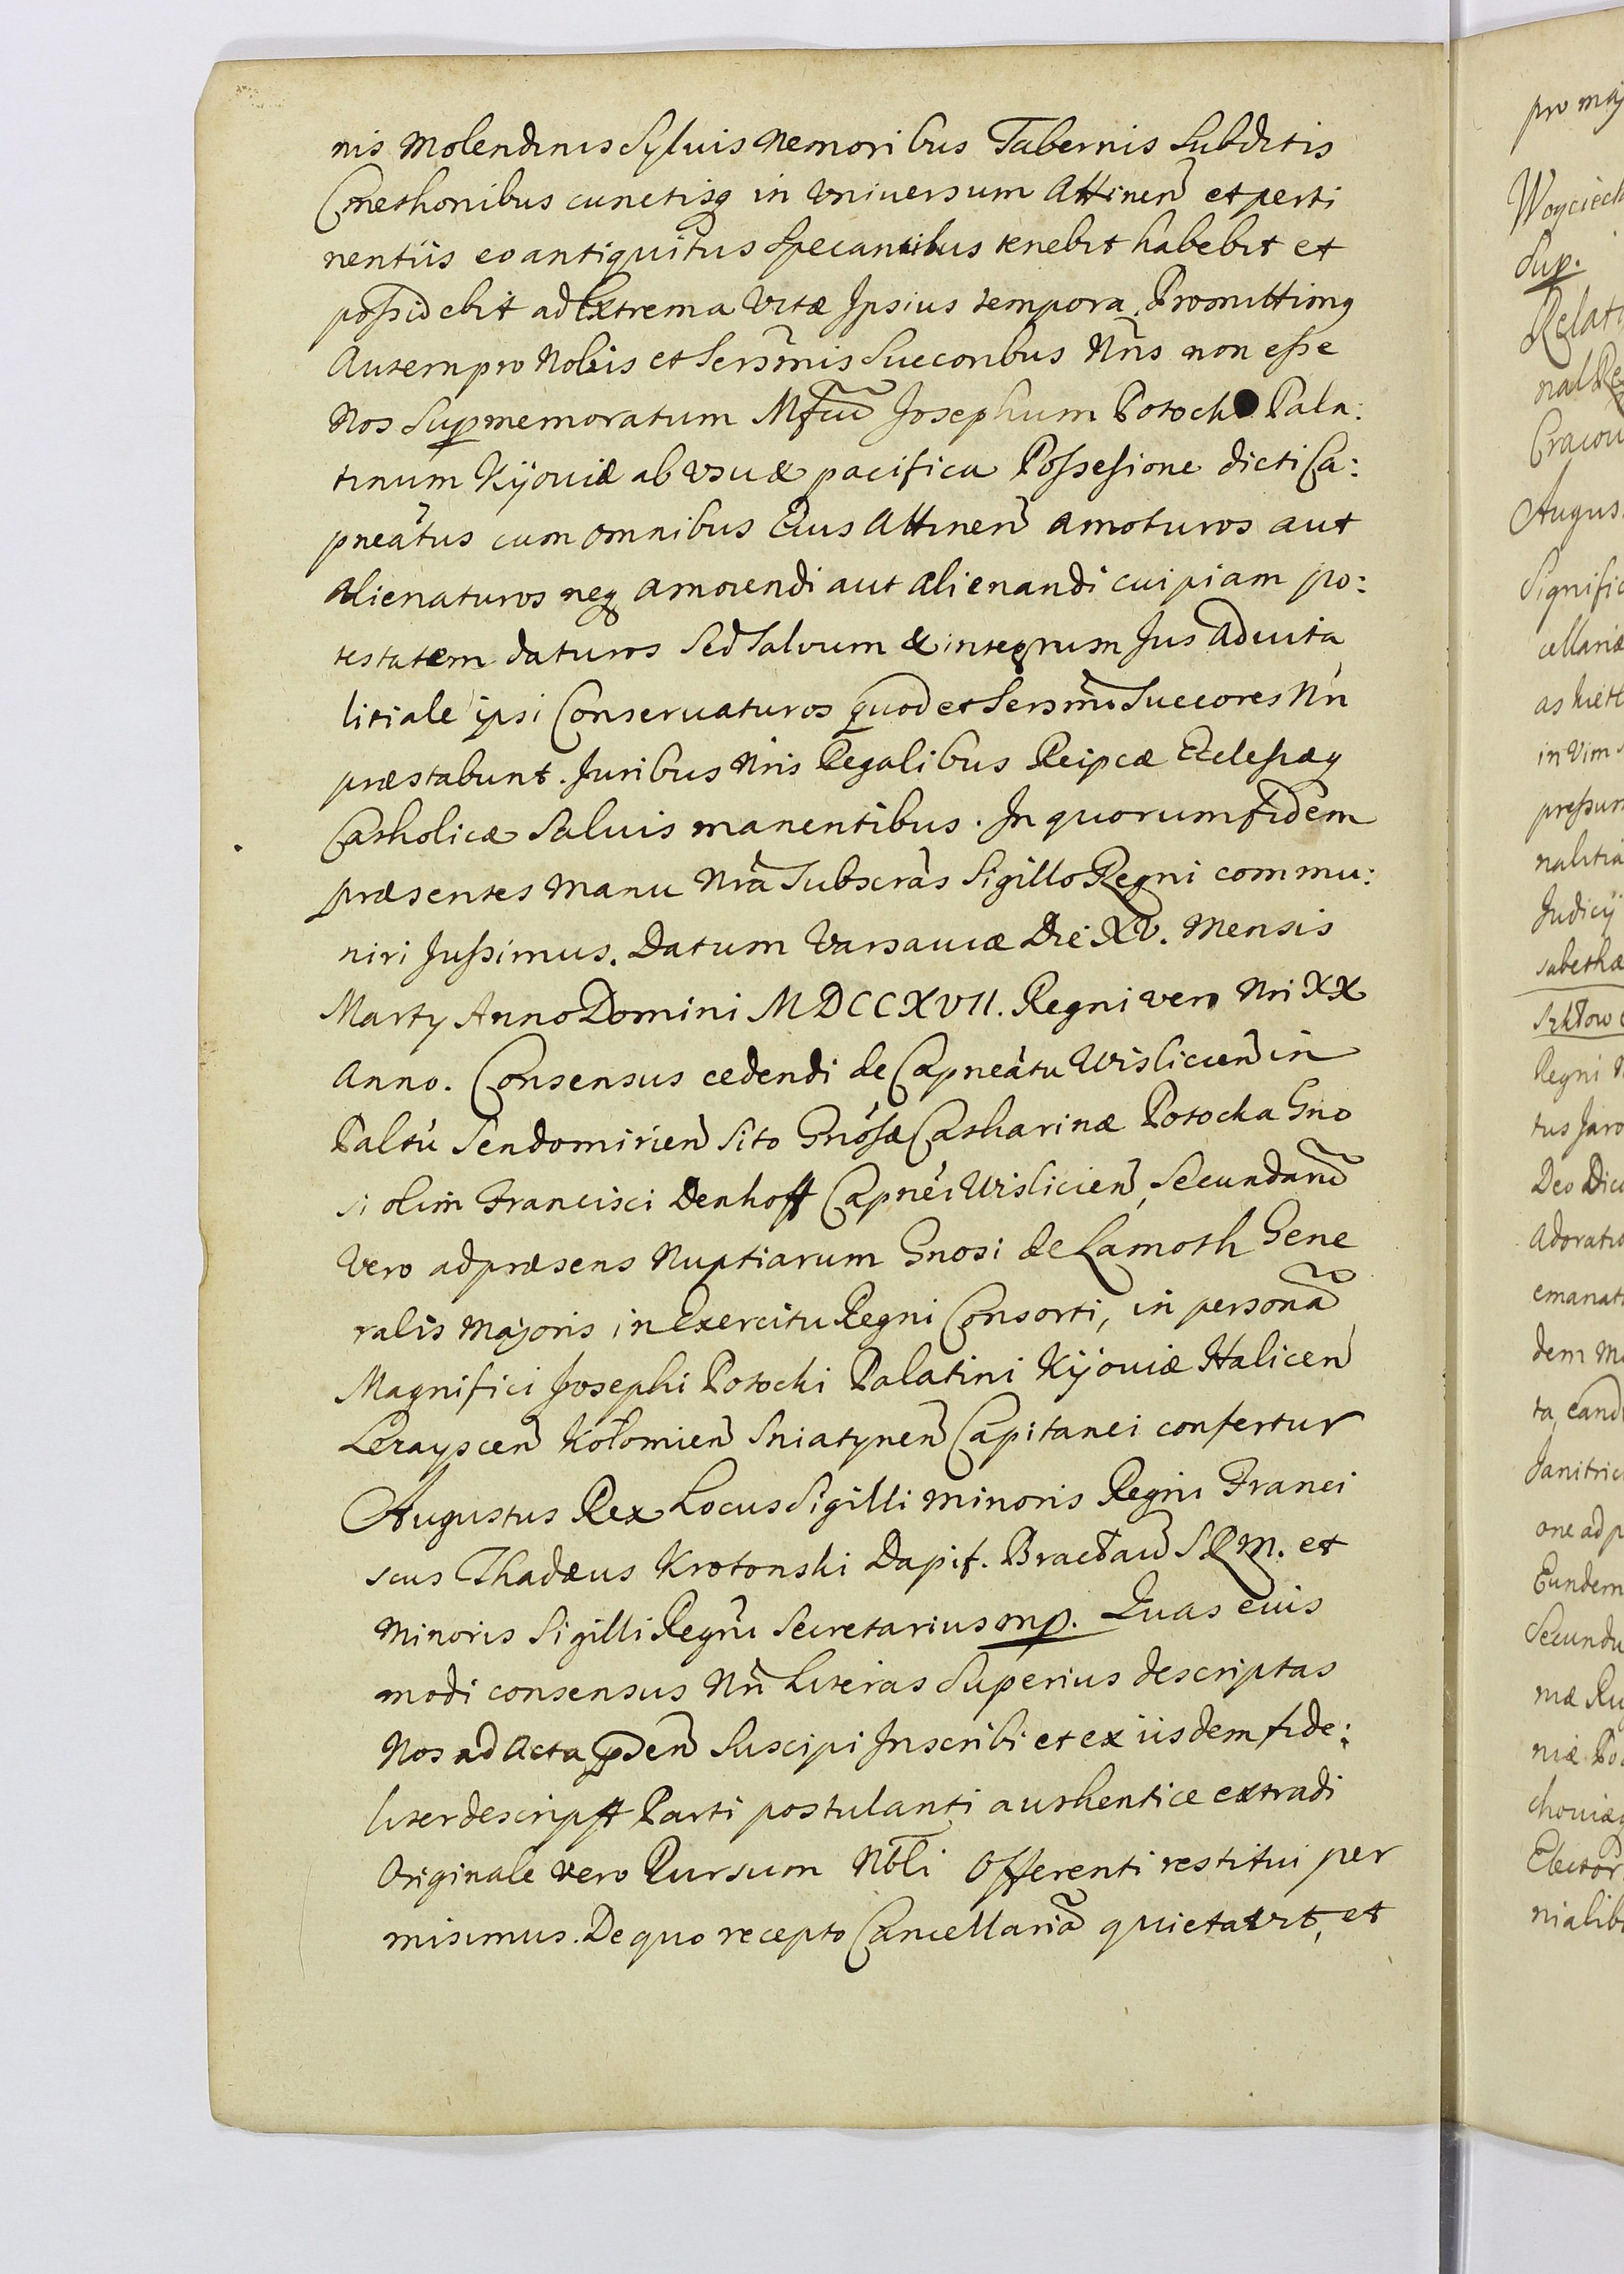 nis Molendinis Syluis Nemoribus Tabernis Subditis
Cmethonibus cunctisq in Vniuersum Attinen̄ et perti
nentiis eo antiquitus Specantibus tenebit habebit et
possidebit ad Extrema Vitæ Ipsius tempora. Promittimq
Autem pro Nobis et Sersm̄is Succoribus Nn̄s non esse
Nos Supmemoratum Mfcū Josephum Potock Pala:
tinum Kijouiæ ab vsu & pacifica Possesione dicti Ca:
pneātus cum omnibus Eius Attinen̄ amoturos aut
Alienaturos neq amouendi aut alienandi cuipiam po:
testatem daturos Sed Saluum & integrum Jus Aduita
litiale ipsi Conseruaturos quod et Sersm̄i Succores Nn̄
præstabunt. Juribus Nris Regalibus Reipcæ Eclesiæq
Catholicæ Saluis manentibus. In quorum fidem
præsentes Manu Nrā Subscrās Sigillo Regni commu:
niri Jussimus. Datum Varsauiæ Die XV. Mensis
Martÿ Anno Domini MDCCXVII. Regni vero Nri XX
Anno. Consensus cedendi de Capneātu Wislicien̄ in
Paltū Sendomirien̄ Sito Gnōsæ Catharinæ Potocka Gno
si olim Francisci Denhoff Capnēi Wislicien̄, Secundarū
Vero ad præsens Nuptiarum Gnosi de Lamoth Gene
ralis Majoris in Exercitu Regni Consorti, in personā
Magnifici Josephi Potocki Palatini Kijouiæ Halicen̄
Lezayscen̄ Kołomien̄ Sniatynen̄ Capitanei confertur
Augustus Rex Locus Sigilli minoris Regni Franci
scus Thadæus Krotonski Dapif. Bracław̄ SRM. et
Minoris Sigilli Regni Secretarius mp. Quas eius
modi consensus Nn̄ Literas Superius descriptas
Nos ad Acta pn̄sen̄ Suscipi Inscribi et ex iisdem fide:
liter descript Parti postulanti authentice extradi
Originale vero Rursum Nbli Offerenti restitui per
misimus. De quo recepto Cancellariā quietavit, et
pro maj
Woyciech
Sup.
Relati
Augus
Signific
cellariæ
in Vim
pressum
nalitia
Judicij
sabethæ
Regni
tus Jaro
Deo
Adoratio
emanat
dem
one ad p
Eundem
Secundu
Elector